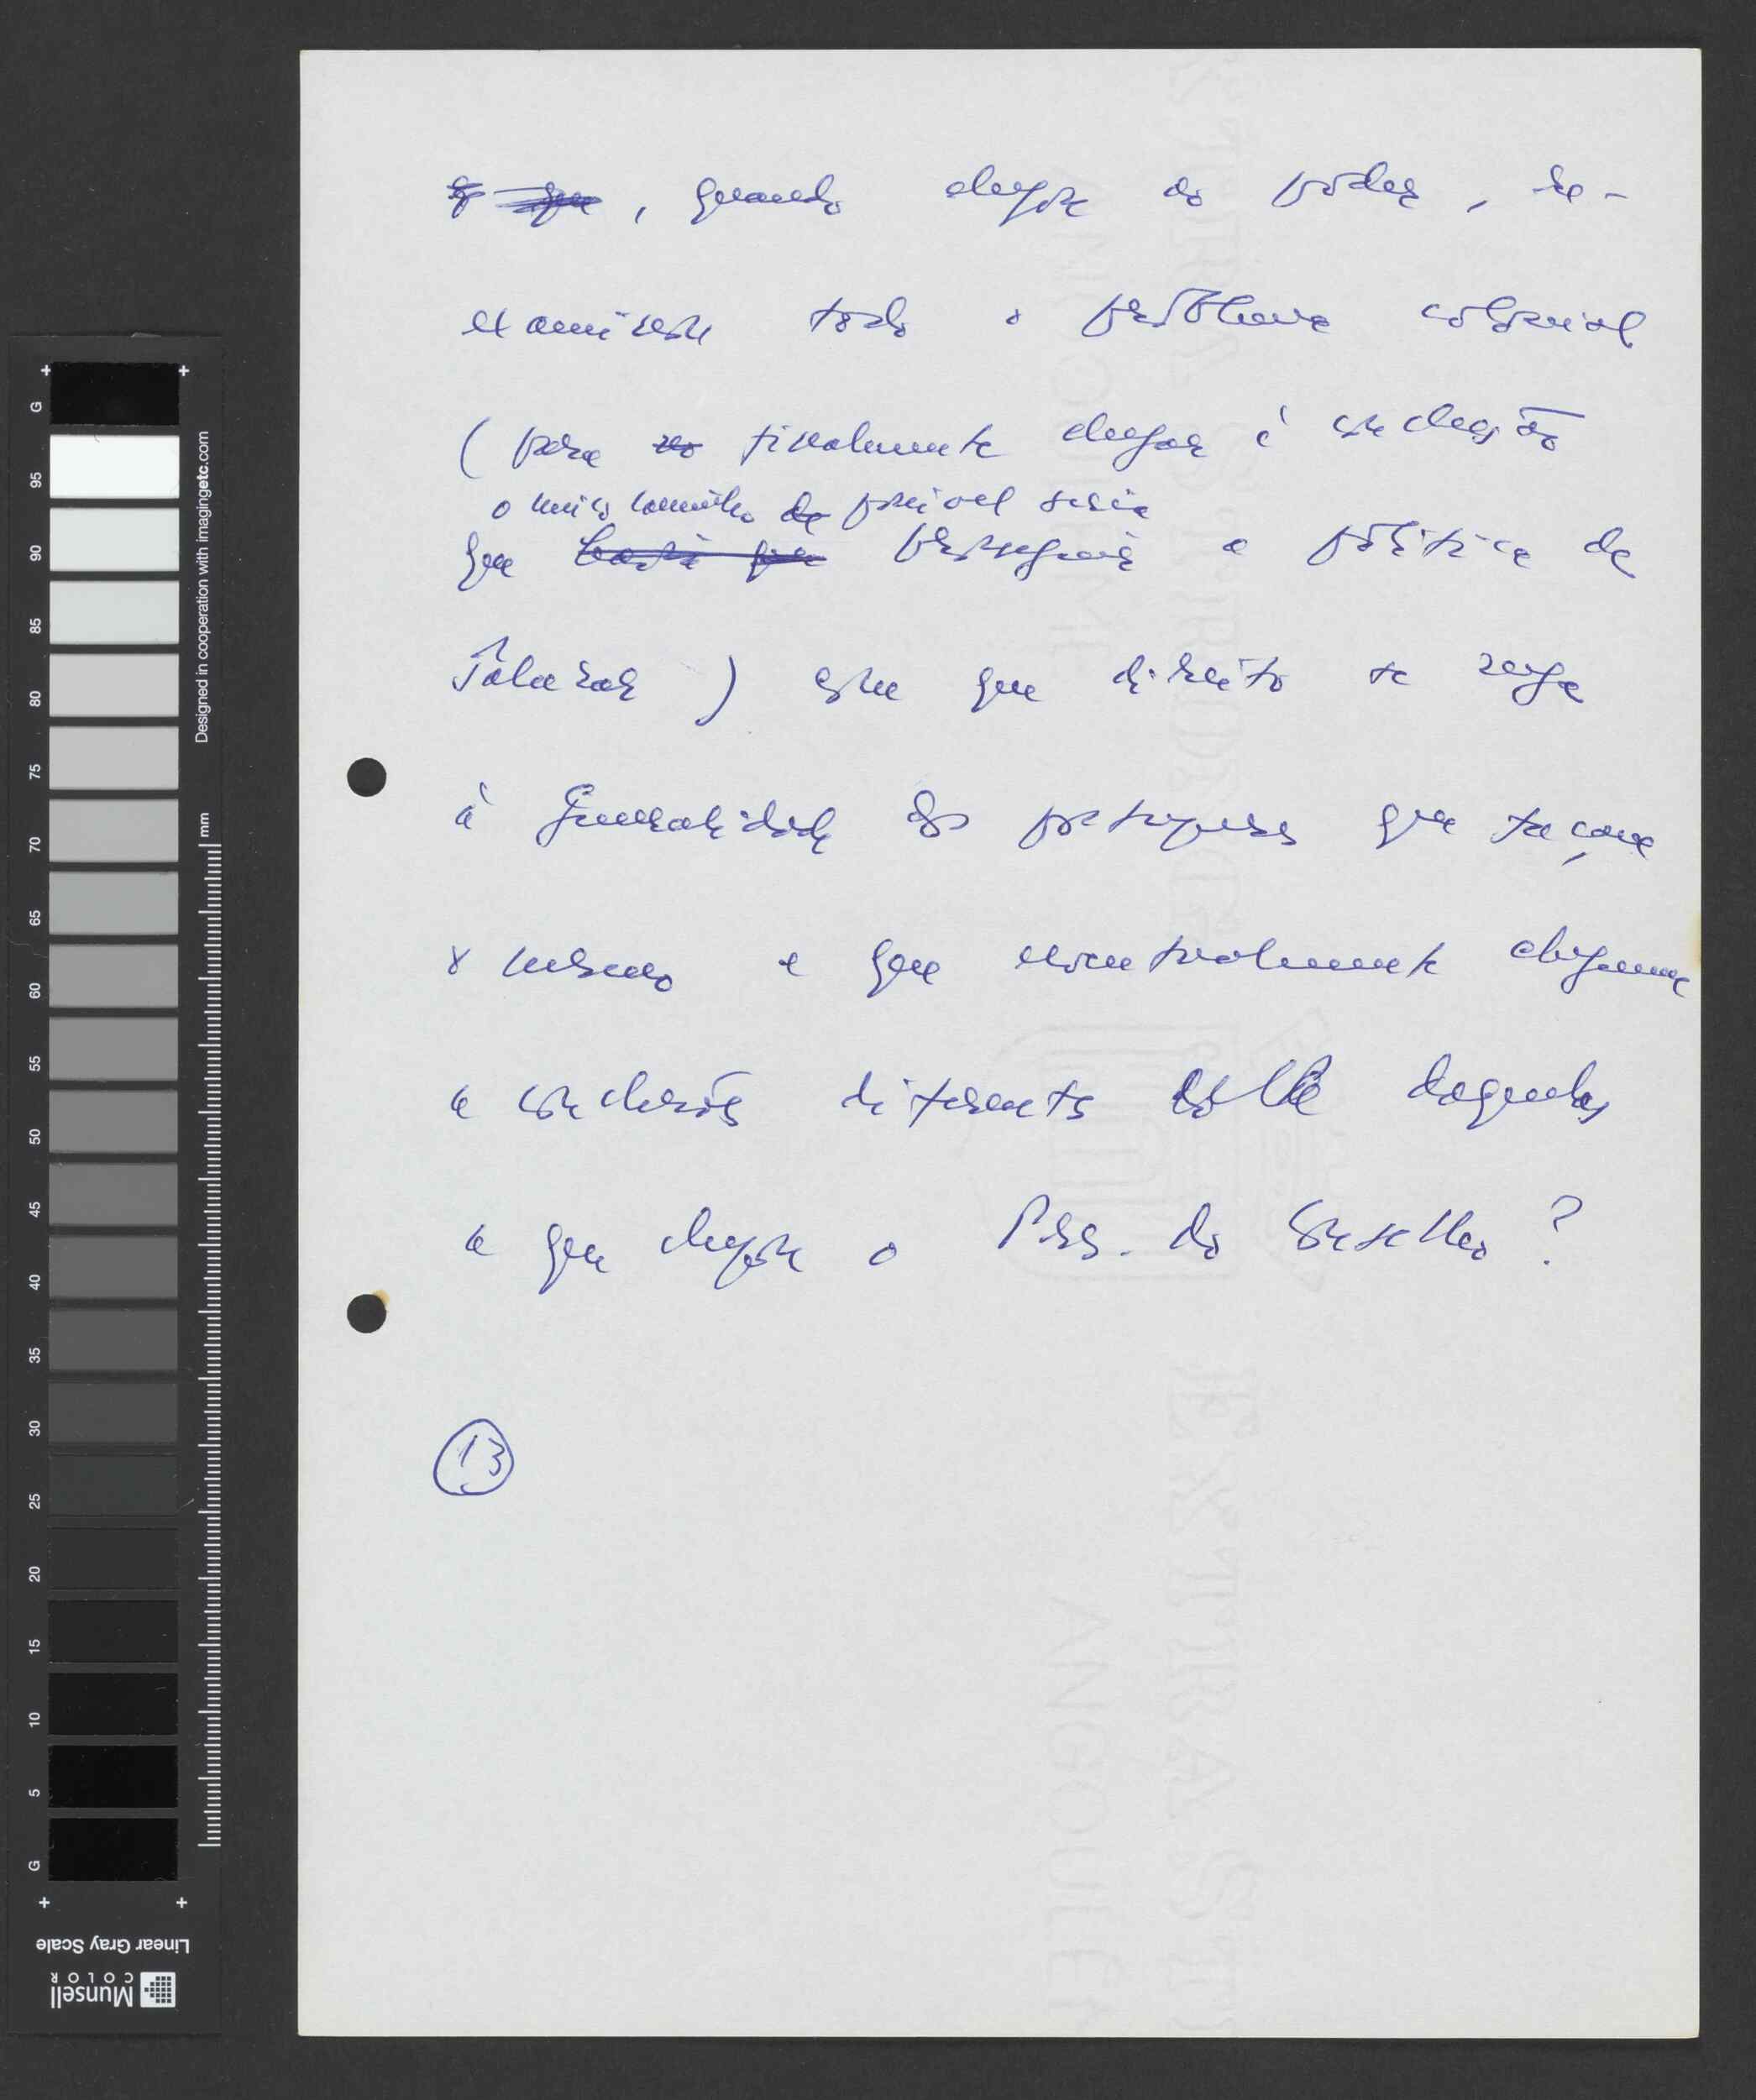 , quando chegou ao poder, re-
examinou todo o problema colonial
(para finalmente chegar à conclusão
o único caminho possível seria
que prosseguir a política de
Salazar) com que direito se nega
à generalidade dos portugueses que façam
o mesmo e que eventualmente cheguem
a conclusões diferentes daquelas
a que chegou o Pres. do Conselho?
13
G
95
90
85
80
75
70
65
60
55
50
45
40
35
30
25
20
15
10
5
G
Designed in cooperation with imagingetc.com
mm
Linear Gray Scale
Munsell
COLOR